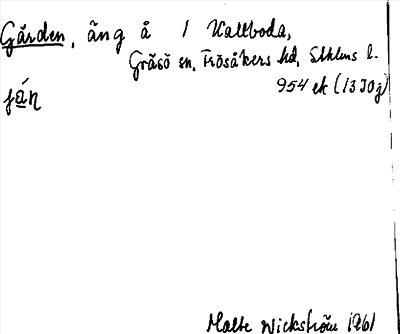 Gården, äng å 1 Kallboda,
Gräsö sn, Frösåkers hd, Sthlms l.
954 ek (13 I 0 g)
Malte Wickström 1961